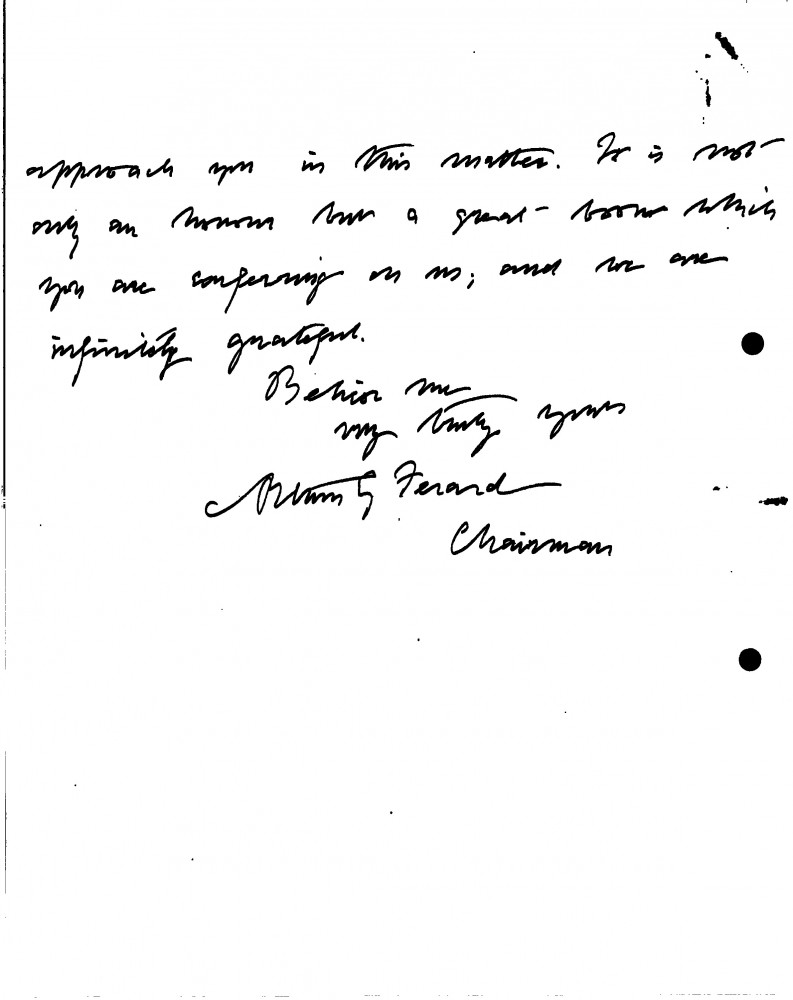 approach you in this matter. It is not
only an honour but a great boon which
you are conferring on us; and we are
infinitely grateful.
Believe me
very truly yours
Arthur G Ferard
Chairman